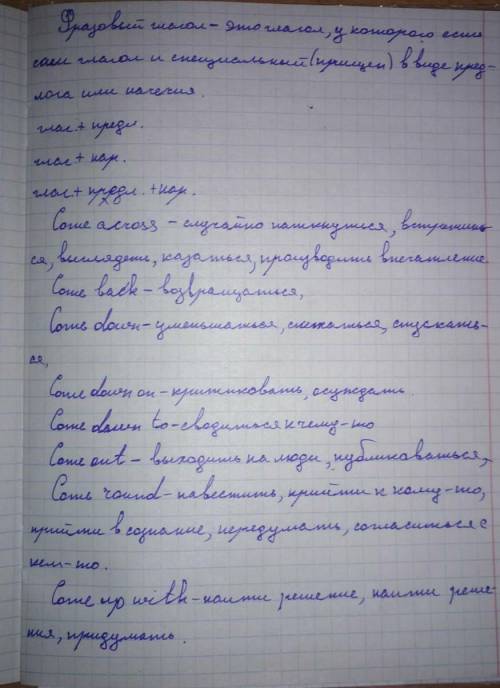 Фразовый глагол - это глагол, у которого есть
сам глагол и специальный (прицеп) в виде пред-
лога или наречия.
глаг + предл.
глаг + нар.
глаг + предл. + нар.
Come across - случайно наткнуться, встретить-
ся, выглядеть, казаться, производить впечатление
Come back - возвращаться,
Come down - уменьшаться, снижаться, спускать-
ся,
Come down on - критиковать, осуждать.
Come down to - сводиться к чему-то
Come out - выходить на люди, публиковаться,
Come round - навестить, прийти к кому-то,
прийти в сознание, передумать, согласиться с
кем-то.
Come up with - найти решение, найти реше-
ния, придумать.